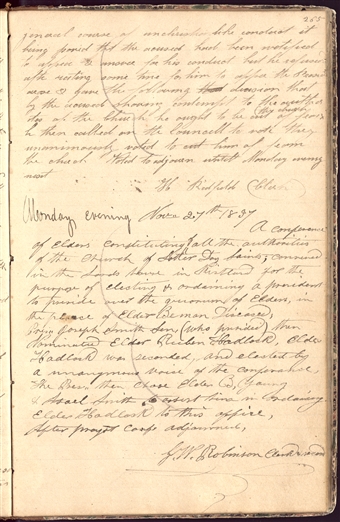 255
general course of unchristian like conduct it
being proved that the accused had been notified
to appear & answer for his conduct but he refused
after waiting some time for him to appear the
arose & gave the following decision that
by the accused showing contempt to the authori
ties of the Church he ought to be cut off from
he then called on the Councill to vote they
unanimously voted to cut him of from
the church Voted to adjourn untill Monday evening
next
H. Redfield Clerk
Monday evening Nov. 27th 1837
A conference
of Elders constituting all the authorities
of the Church of Latter Day Saints, convened
in the Lords House in Kirtland for the
purpose of electing & ordaining a president
to preside over the quorum of Elders, in
the place of Elder Beman Diseased,
Joseph Smith Sen, (who presided) then
nominated Elder Reuben Hadlock, Elder
Hadlock was seconded, and elected by
a unanymous voice of the conference,
The Pres. then chose Elder Young
& Israel Smith to assist him in ordaining
Elder Hadlock to this office,
After prayer Conf adjourned,
G. W. Robinson Clerk